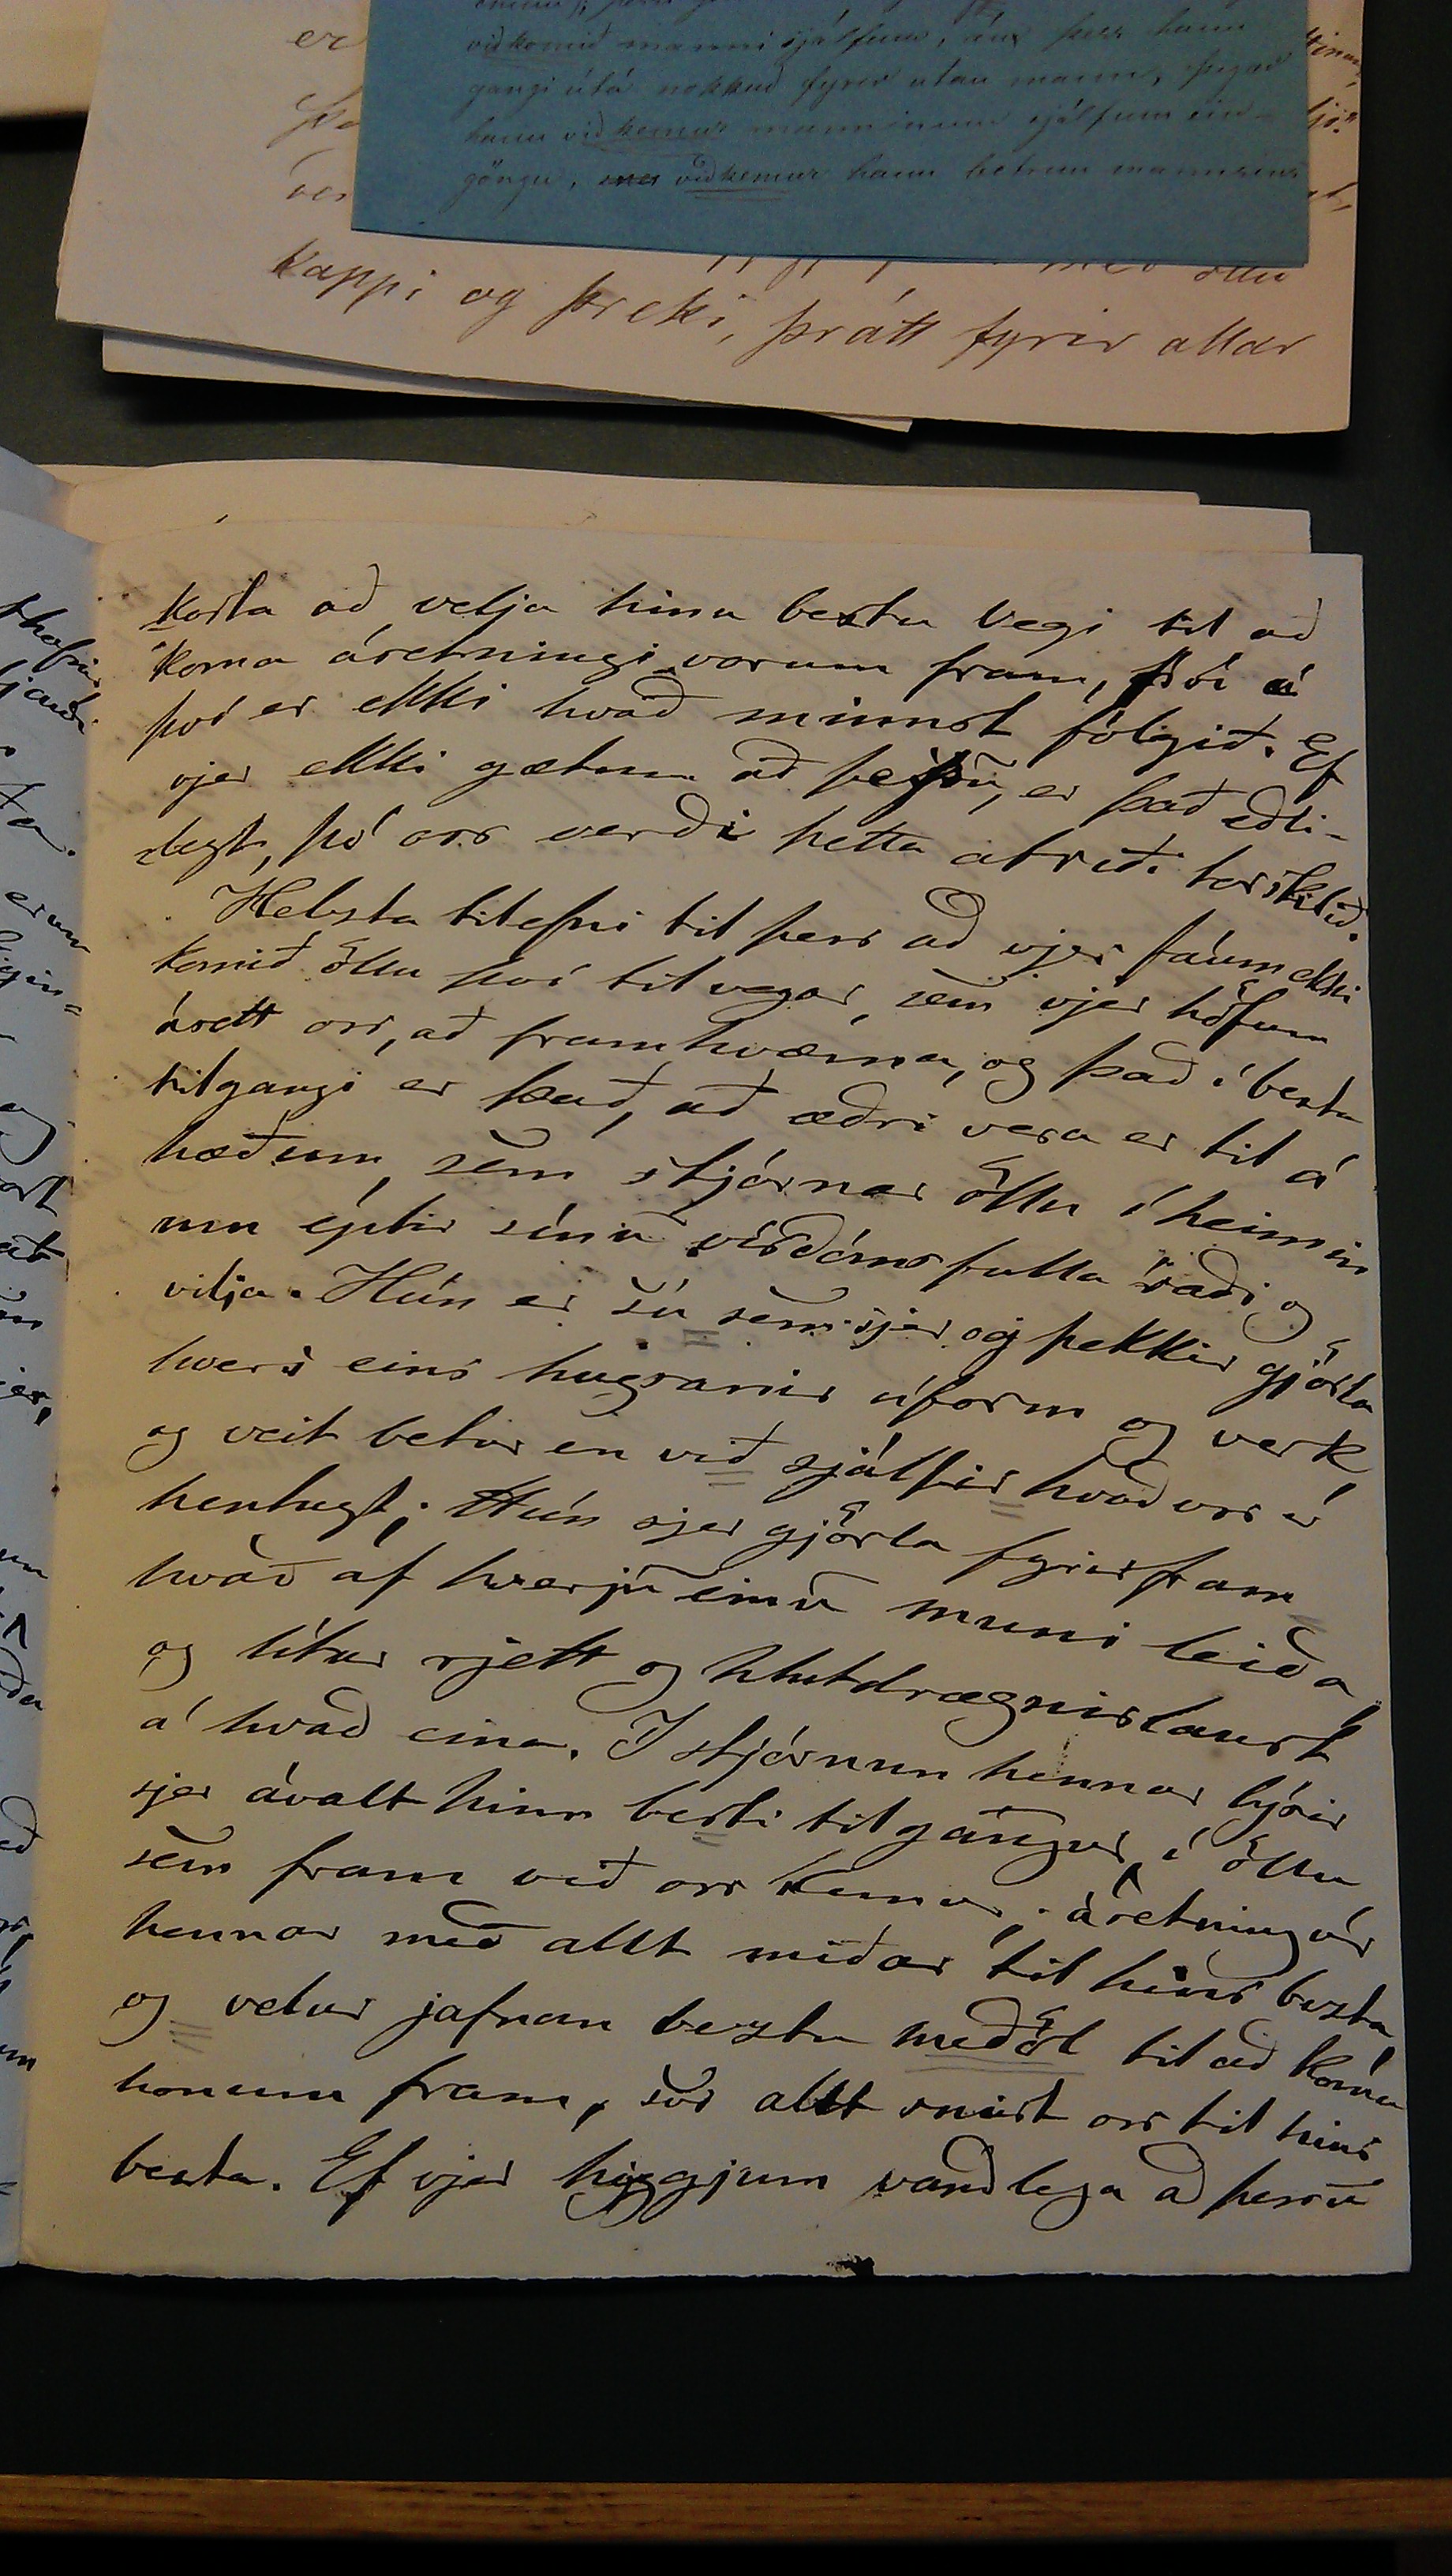 er
viðkomið manni sjálfum, án þess hann
gangi útá nokkuð fyrir utan mann, þegar
hann viðkemur manninum sjálfum ein-
göngu, viðkemur hann betrun mannsins
öllu
kappi og þreki, þrátt fyrir allar
kosta að velja hina bestu vegi til að
koma ásetningi vorum fram, því á
því er ekki hvað minnst fólgið. Ef
vjer ekki gætum að þessu, er það eðli-
legt, þó oss verði þetta atriði torskilið.
Helzta tilefni til þess að vjer fáum ekki
komið öllu því til vegar, sem vjer höfum
ásett oss, að framkvæma, og það í besta
tilgangi er það, að æðri vera er til á
hæðum, sem stjórnar öllu í heimin
um eptir sínu vísdómsfulla ráði og
vilja. Hún er sú sem sjer og þekkir gjörla
hvers eins hugsanir áform og verk,
og veit betur en við sjálfir hvað oss er
hentugt; Hún sjer gjörla fyrirfram
hvað af hverju einu muni leiða,
og lítur rjett og hlutdrægnislaust
á hvað eina. I stjórnun hennar lýsir
sjer ávalt hinn besti tilgangur, í öllu
sem fram við oss kemur; ásetningur
hennar með allt miðar til hins besta,
og velur jafnan beztu meðöl til að koma
honum fram, svo allt snúist oss til hins
besta. Ef vjer hyggjum vandlega að þessu